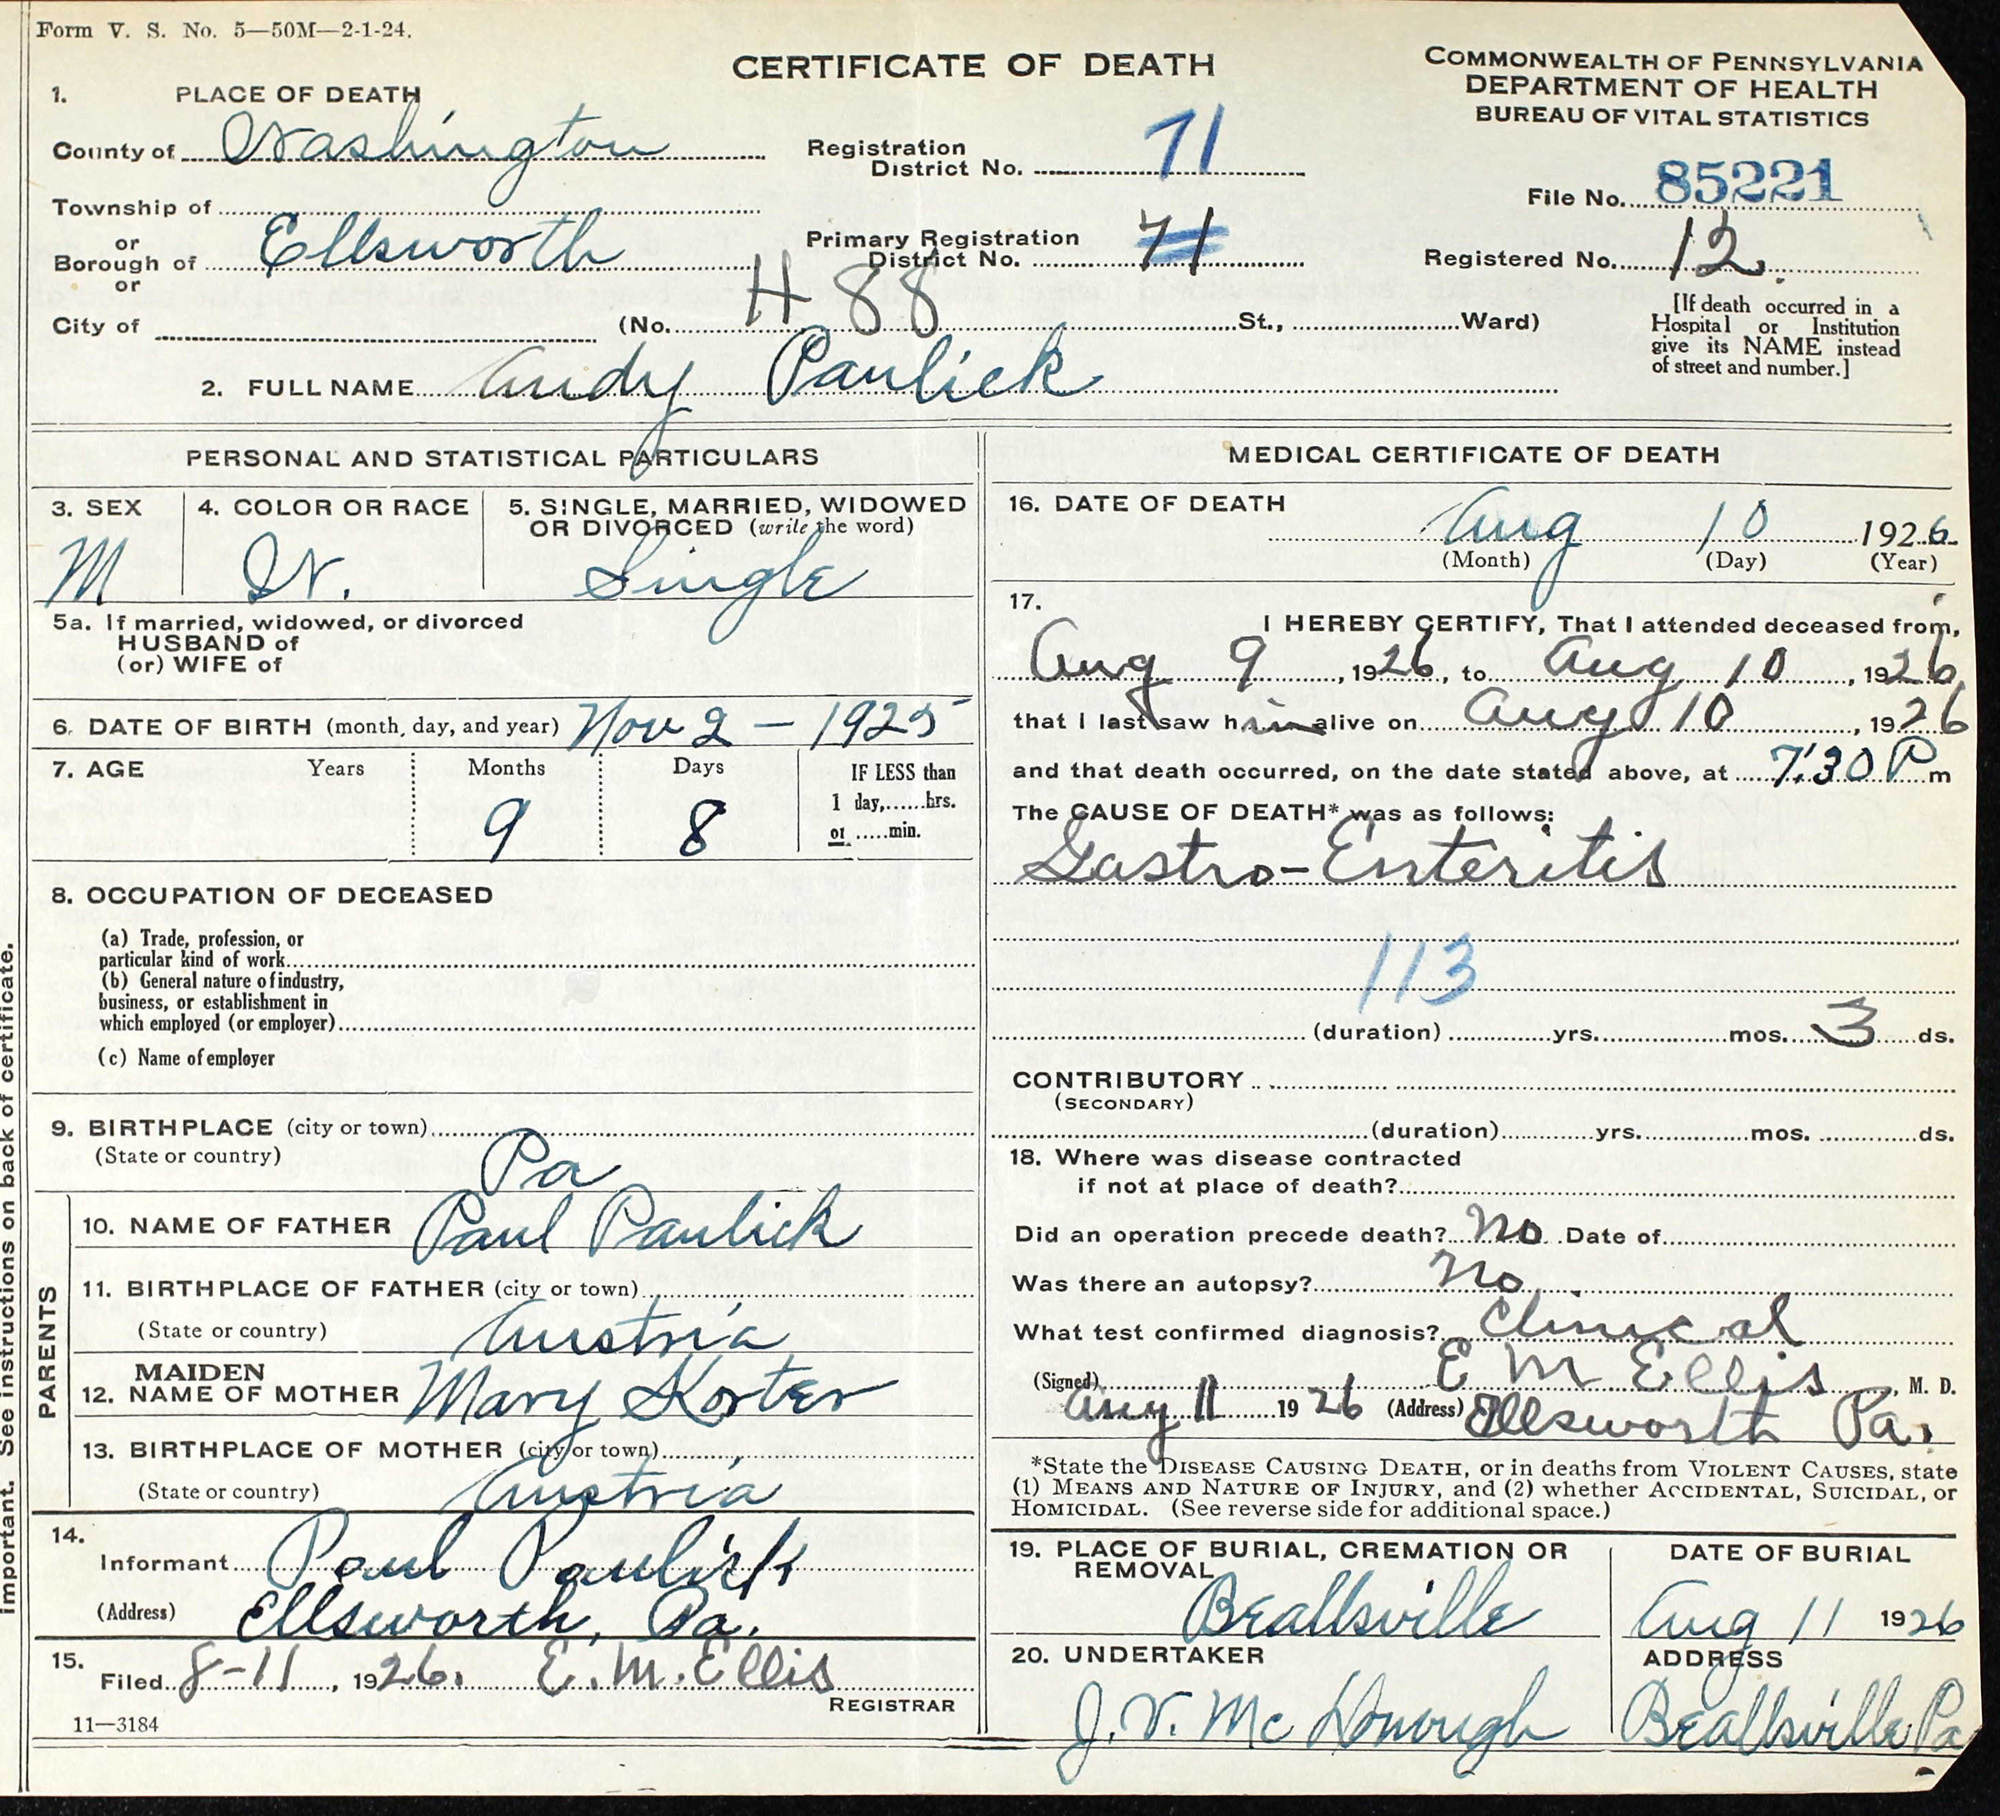 Form V. S. No. 5—50M—2-1-24.
CERTIFICATE OF DEATH
COMMONWEALTH OF PENNSYLVANIA
DEPARTMENT OF HEALTH
BUREAU OF VITAL STATISTICS
1. PLACE OF DEATH
County of Washington
Registration District No. 71
File No. 85221
Township of
or
Borough of Ellsworth
Primary Registration District No. 71
Registered No. 12.
or
City of (No. H 88 St., Ward)
[If death occurred in a
Hospital or Institution
give its NAME instead
of street and number.]
2. FULL NAME Andy Paulick
PERSONAL AND STATISTICAL PARTICULARS
3. SEX
M
4. COLOR OR RACE
W.
5. SINGLE, MARRIED, WIDOWED
OR DIVORCED (write the word)
Single
5a. If married, widowed, or divorced
HUSBAND of
(or) WIFE of
6. DATE OF BIRTH (month, day, and year) Nov 2 — 1925
7. AGE Years Months Days
9 8
IF LESS than
1 day,......hrs.
or .....min.
8. OCCUPATION OF DECEASED
(a) Trade, profession, or
particular kind of work
(b) General nature of industry,
business, or establishment in
which employed (or employer)
(c) Name of employer
9. BIRTHPLACE (city or town)
(State or country) Pa
PARENTS
10. NAME OF FATHER Paul Paulick
11. BIRTHPLACE OF FATHER (city or town)
(State or country) Austria
MAIDEN
12. NAME OF MOTHER Mary Korter
13. BIRTHPLACE OF MOTHER (city or town)
(State or country) Austria
14.
Informant Paul Paulick
(Address) Ellsworth, Pa.
15.
Filed 8-11, 1926. E. M. Ellis
REGISTRAR
11—3184
MEDICAL CERTIFICATE OF DEATH
16. DATE OF DEATH
Aug 10 1926
(Month) (Day) (Year)
17.
I HEREBY CERTIFY, That I attended deceased from,
Aug 9, 1926, to Aug 10, 1926,
that I last saw him alive on Aug 10, 1926
and that death occurred, on the date stated above, at 7:30 P m
The CAUSE OF DEATH* was as follows:
Gastro-Enteritis
113
(duration) yrs. mos. 3 ds.
CONTRIBUTORY
(SECONDARY)
(duration) yrs. mos. ds.
18. Where was disease contracted
if not at place of death?
Did an operation precede death? No Date of
Was there an autopsy? No
What test confirmed diagnosis? Clinical
(Signed) E M Ellis, M. D.
Aug 11 1926 (Address) Ellsworth Pa.
*State the DISEASE CAUSING DEATH, or in deaths from VIOLENT CAUSES, state
(1) MEANS AND NATURE OF INJURY, and (2) whether ACCIDENTAL, SUICIDAL, or
HOMICIDAL. (See reverse side for additional space.)
19. PLACE OF BURIAL, CREMATION OR
REMOVAL
Beallsville
DATE OF BURIAL
Aug 11 1926
20. UNDERTAKER
J. V. McDonough
ADDRESS
Beallsville Pa
important. See instructions on back of certificate.